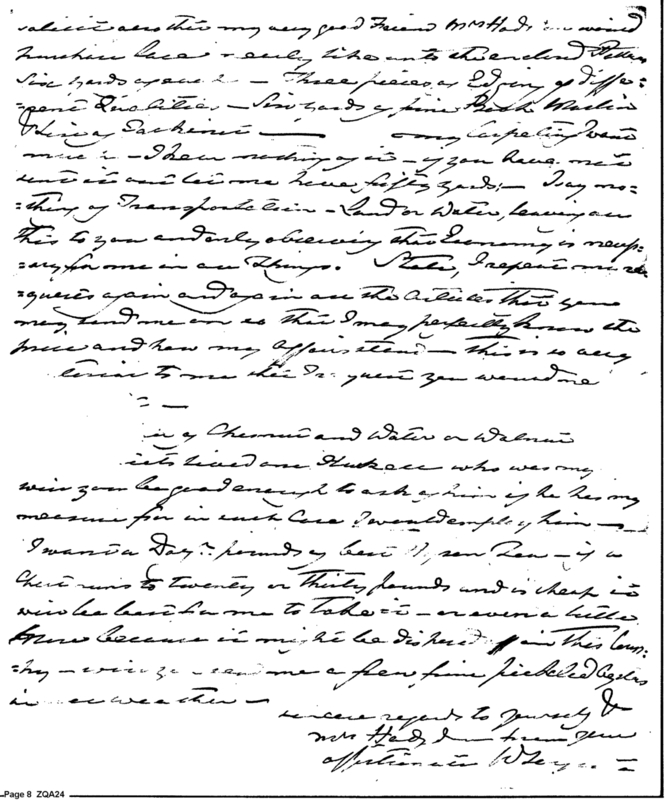 solicit also thro my very good Friend Mrs Hods would
purchase lace nearly like unto the enclosed Pattern
Six yards of each — Three pieces of Edging of diffe-
=rent Qualities — Six yards of fine Book Muslin
— my Carpeting I want
much — I hear nothing of it — if you have not
sent it out let me have fifty yards — I say no=
=thing of Transportation — Land or Water, leaving all
this to you and only observing that Economy is necess=
=ary for me in all Things. State, I repeat my re=
=quest again and again all the Articles that you
may send me on so that I may perfectly know the
price and how my Affairs stand — this is so very
to me that I request you would
of Chesnut and Water or Walnut
lived one who was my
will you be good enough to ask of him if he has my
measure for in such Case I would employ him —
I want a Doz.n pounds of best Hyson Tea — if a
Chest runs to twenty or Thirty pounds and is cheap it
will be best for me to take it — or even a little
more because it might be disposed off in this Coun=
=try — will you send me a few fine pickled Oysters
in weather —
sincere regards to yourself &
Mrs from your
affectionate
Page 8 ZQA24